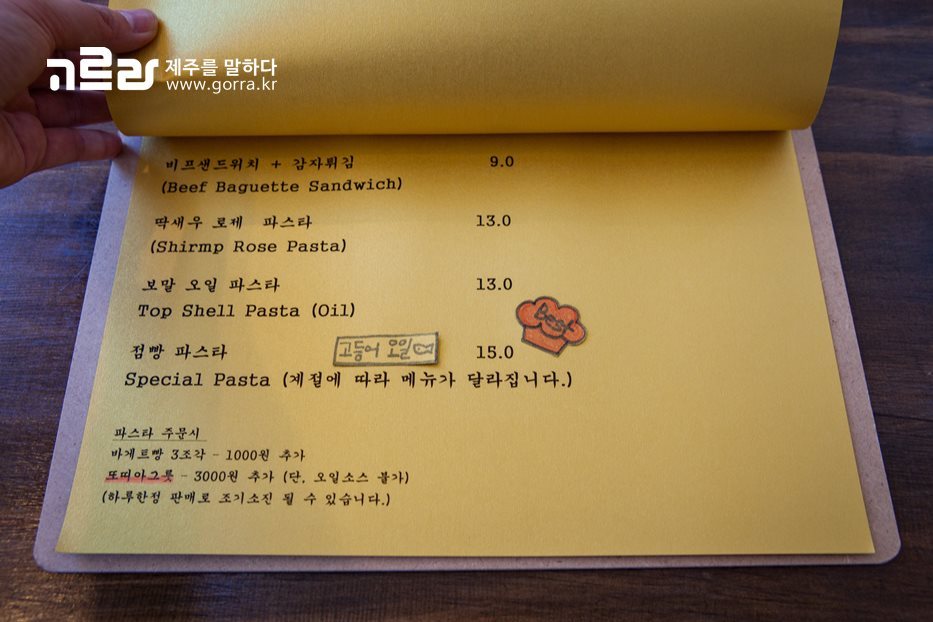 고르라 제주를 말하다
www.gorra.kr
비프샌드위치 + 감자튀김 9.0
(Beef Baguette Sandwich)
딱새우 로제 파스타 13.0
(Shirmp Rose Pasta)
보말 오일 파스타 13.0
Top Shell Pasta (Oil)
Best
점빵 파스타 고등어 오일 15.0
Special Pasta (계절에 따라 메뉴가 달라집니다.)
파스타 주문시
바게트빵 3조각 - 1000원 추가
또띠아그릇 - 3000원 추가 (단, 오일소스 불가)
(하루한정 판매로 조기소진 될 수 있습니다.)